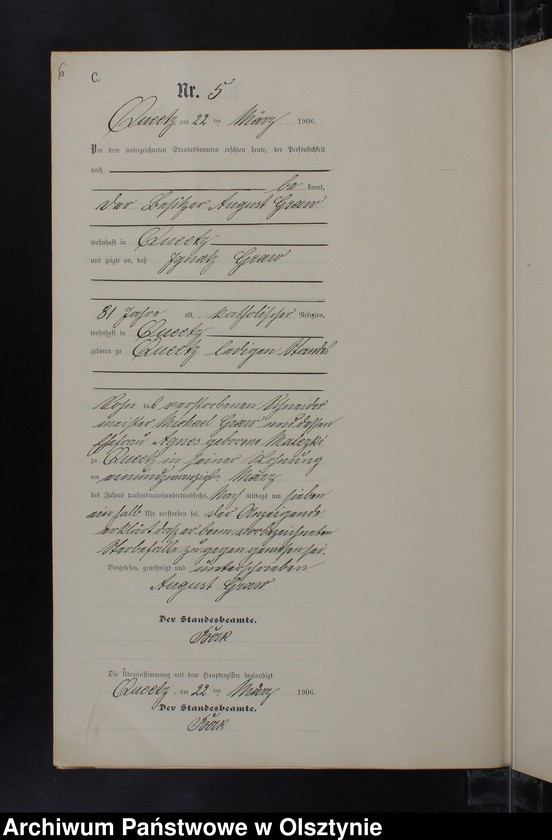 6
C.
Nr. 5
Queetz am 22 ten März 1906.
Vor dem unterzeichneten Standesbeamten erschien heute, der Persönlichkeit
nach
be kannt,
der Besitzer August Graw
wohnhaft in Queetz
und zeigte an, daß Ignatz Graw
81 Jahre alt, katholischer Religion,
wohnhaft in Queetz
geboren zu Queetz ledigen Standes
Sohn des verstorbenen Schneider
meister Michael Graw und dessen
Ehefrau Agnes geborene Malezki
zu Queetz in seiner Wohnung
am einundzwanzigten März
des Jahres tausendneunhundertundsechs, Nach mittags um sieben
einhalb Uhr verstorben sei. Der Anzeigende
erklärt daß er beim vorbezeichneten
Sterbefalle zugegen gewesen sei.
Vorgelesen, genehmigt und unterschrieben
August Graw
Der Standesbeamte.
Bönk
Die Übereinstimmung mit dem Hauptregister beglaubigt.
Queetz, am 22 ten März 1906.
Der Standesbeamte.
Bönk
Archiwum Państwowe w Olsztynie